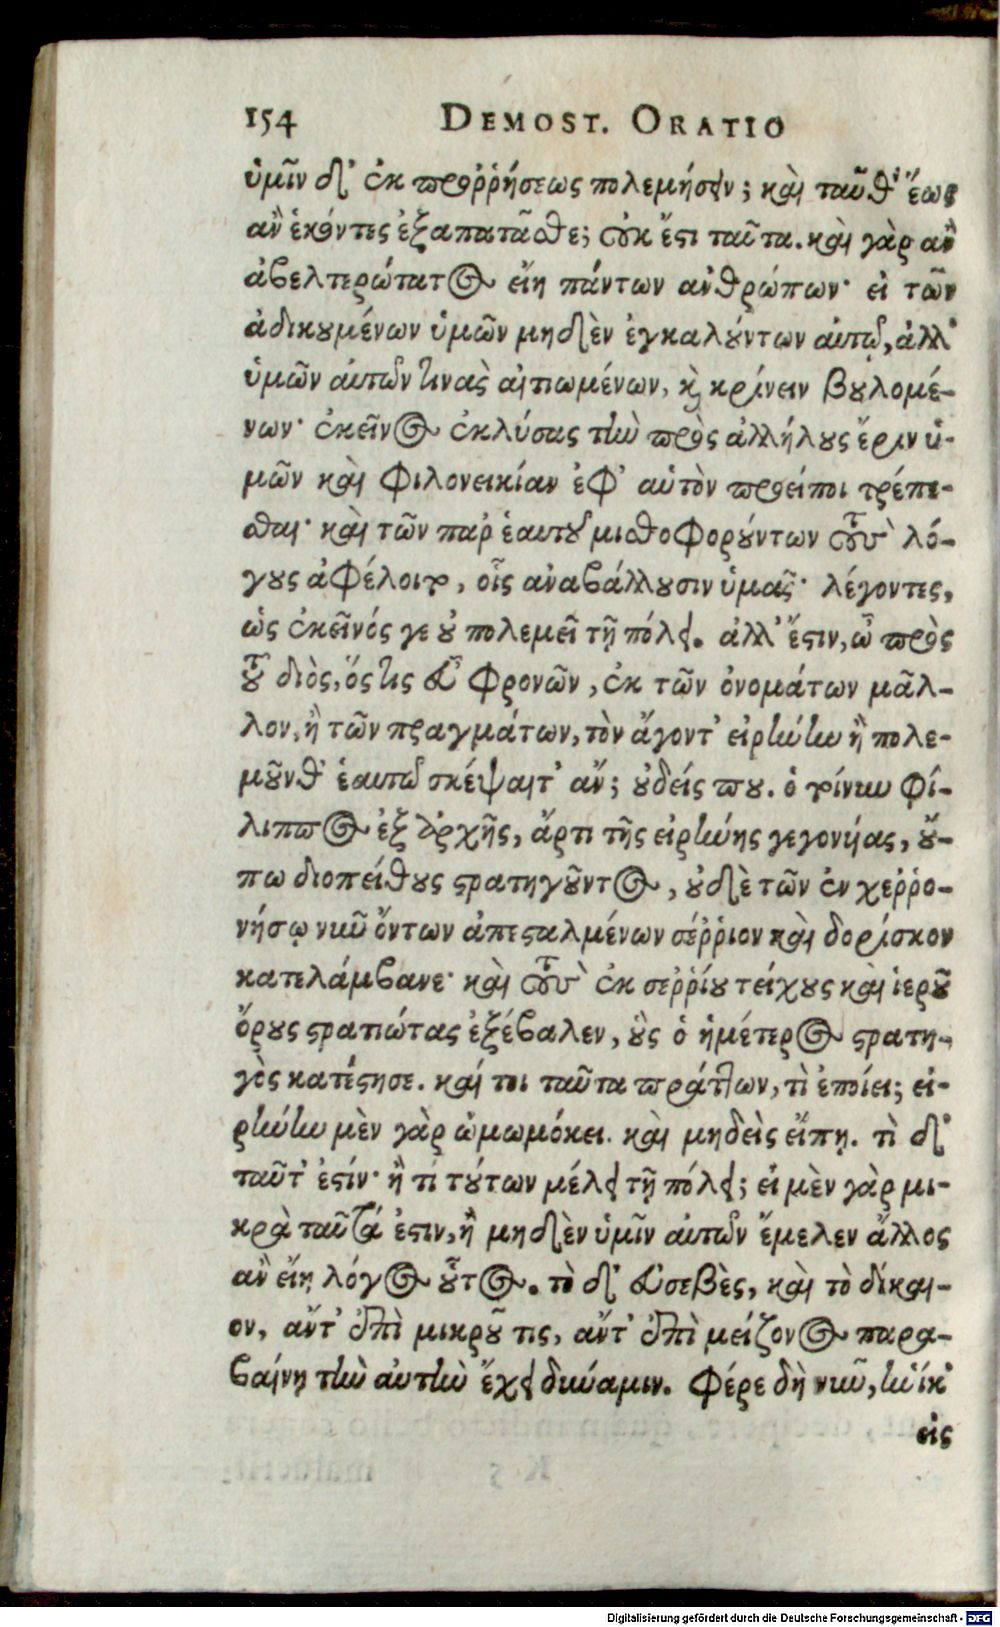 154 DEMOST. ORATIO
ὑμῖν δ' ἐκ προῤῥήσεως πολεμήσειν; καὶ ταῦθ' ἕως
ἂν ἑκόντες ἐξαπατᾶσθε; οὐκ ἔστι ταῦτα. καὶ γὰρ ἂν
ἀβελτερώτατος εἴη πάντων ἀνθρώπων· εἰ τῶν
ἀδικουμένων ὑμῶν μηδὲν ἐγκαλούντων αὐτῷ, ἀλλ'
ὑμῶν αὐτῶν τινὰς αἰτιωμένων, καὶ κρίνειν βουλομέ-
νων· ἐκεῖνος ἐκλύσας τὴν πρὸς ἀλλήλους ἔριν ὑ-
μῶν καὶ φιλονεικίαν ἐφ' αὑτὸν προείποι τρέπε-
σθαι· καὶ τῶν παρ' ἑαυτοῦ μισθοφορούντων τοὺς λό-
γους ἀφέλοιτο, οἷς ἀναβάλλουσιν ὑμᾶς· λέγοντες,
ὡς ἐκεῖνός γε οὐ πολεμεῖ τῇ πόλει. ἀλλ' ἔστιν, ὦ πρὸς
τοῦ διὸς, ὅστις εὖ φρονῶν, ἐκ τῶν ὀνομάτων μᾶλ-
λον, ἢ τῶν πραγμάτων, τὸν ἄγοντ' εἰρήνην ἢ πολε-
μοῦνθ' ἑαυτῷ σκέψαιτ' ἄν; οὐδείς που. ὁ τοίνυν φί-
λιππος ἐξ ἀρχῆς, ἄρτι τῆς εἰρήνης γεγονυίας, οὔ-
πω διοπείθους στρατηγοῦντος, οὐδὲ τῶν ἐν χεῤῥο-
νήσῳ νῦν ὄντων ἀπεσταλμένων σέῤῥιον καὶ δορίσκον
κατελάμβανε· καὶ τοὺς ἐκ σεῤῥίου τείχους καὶ ἱεροῦ
ὄρους στρατιώτας ἐξέβαλεν, οὓς ὁ ἡμέτερος στρατη-
γὸς κατέστησε. καί τοι ταῦτα πράττων, τὶ ἐποίει; εἰ-
ρήνην μὲν γὰρ ὠμωμόκει. καὶ μηδεὶς εἴπῃ. τὶ δ'
ταῦτ' ἐστίν· ἢ τί τούτων μέλει τῇ πόλει; εἰ μὲν γὰρ μι-
κρὰ ταῦτά ἐστιν, ἢ μηδὲν ὑμῖν αὐτῶν ἔμελεν ἄλλος
ἂν εἴη λόγος οὗτος. τὸ δ' εὐσεβὲς, καὶ τὸ δίκαι-
ον, ἄντ' ἐπὶ μικροῦ τις, ἄντ' ἐπὶ μείζονος παρα-
βαίνῃ τὴν αὐτὴν ἔχει δύναμιν. Φέρε δὴ νῦν, ἡνίκ'
εἰς
Digitalisierung gefördert durch die Deutsche Forschungsgemeinschaft - DFG